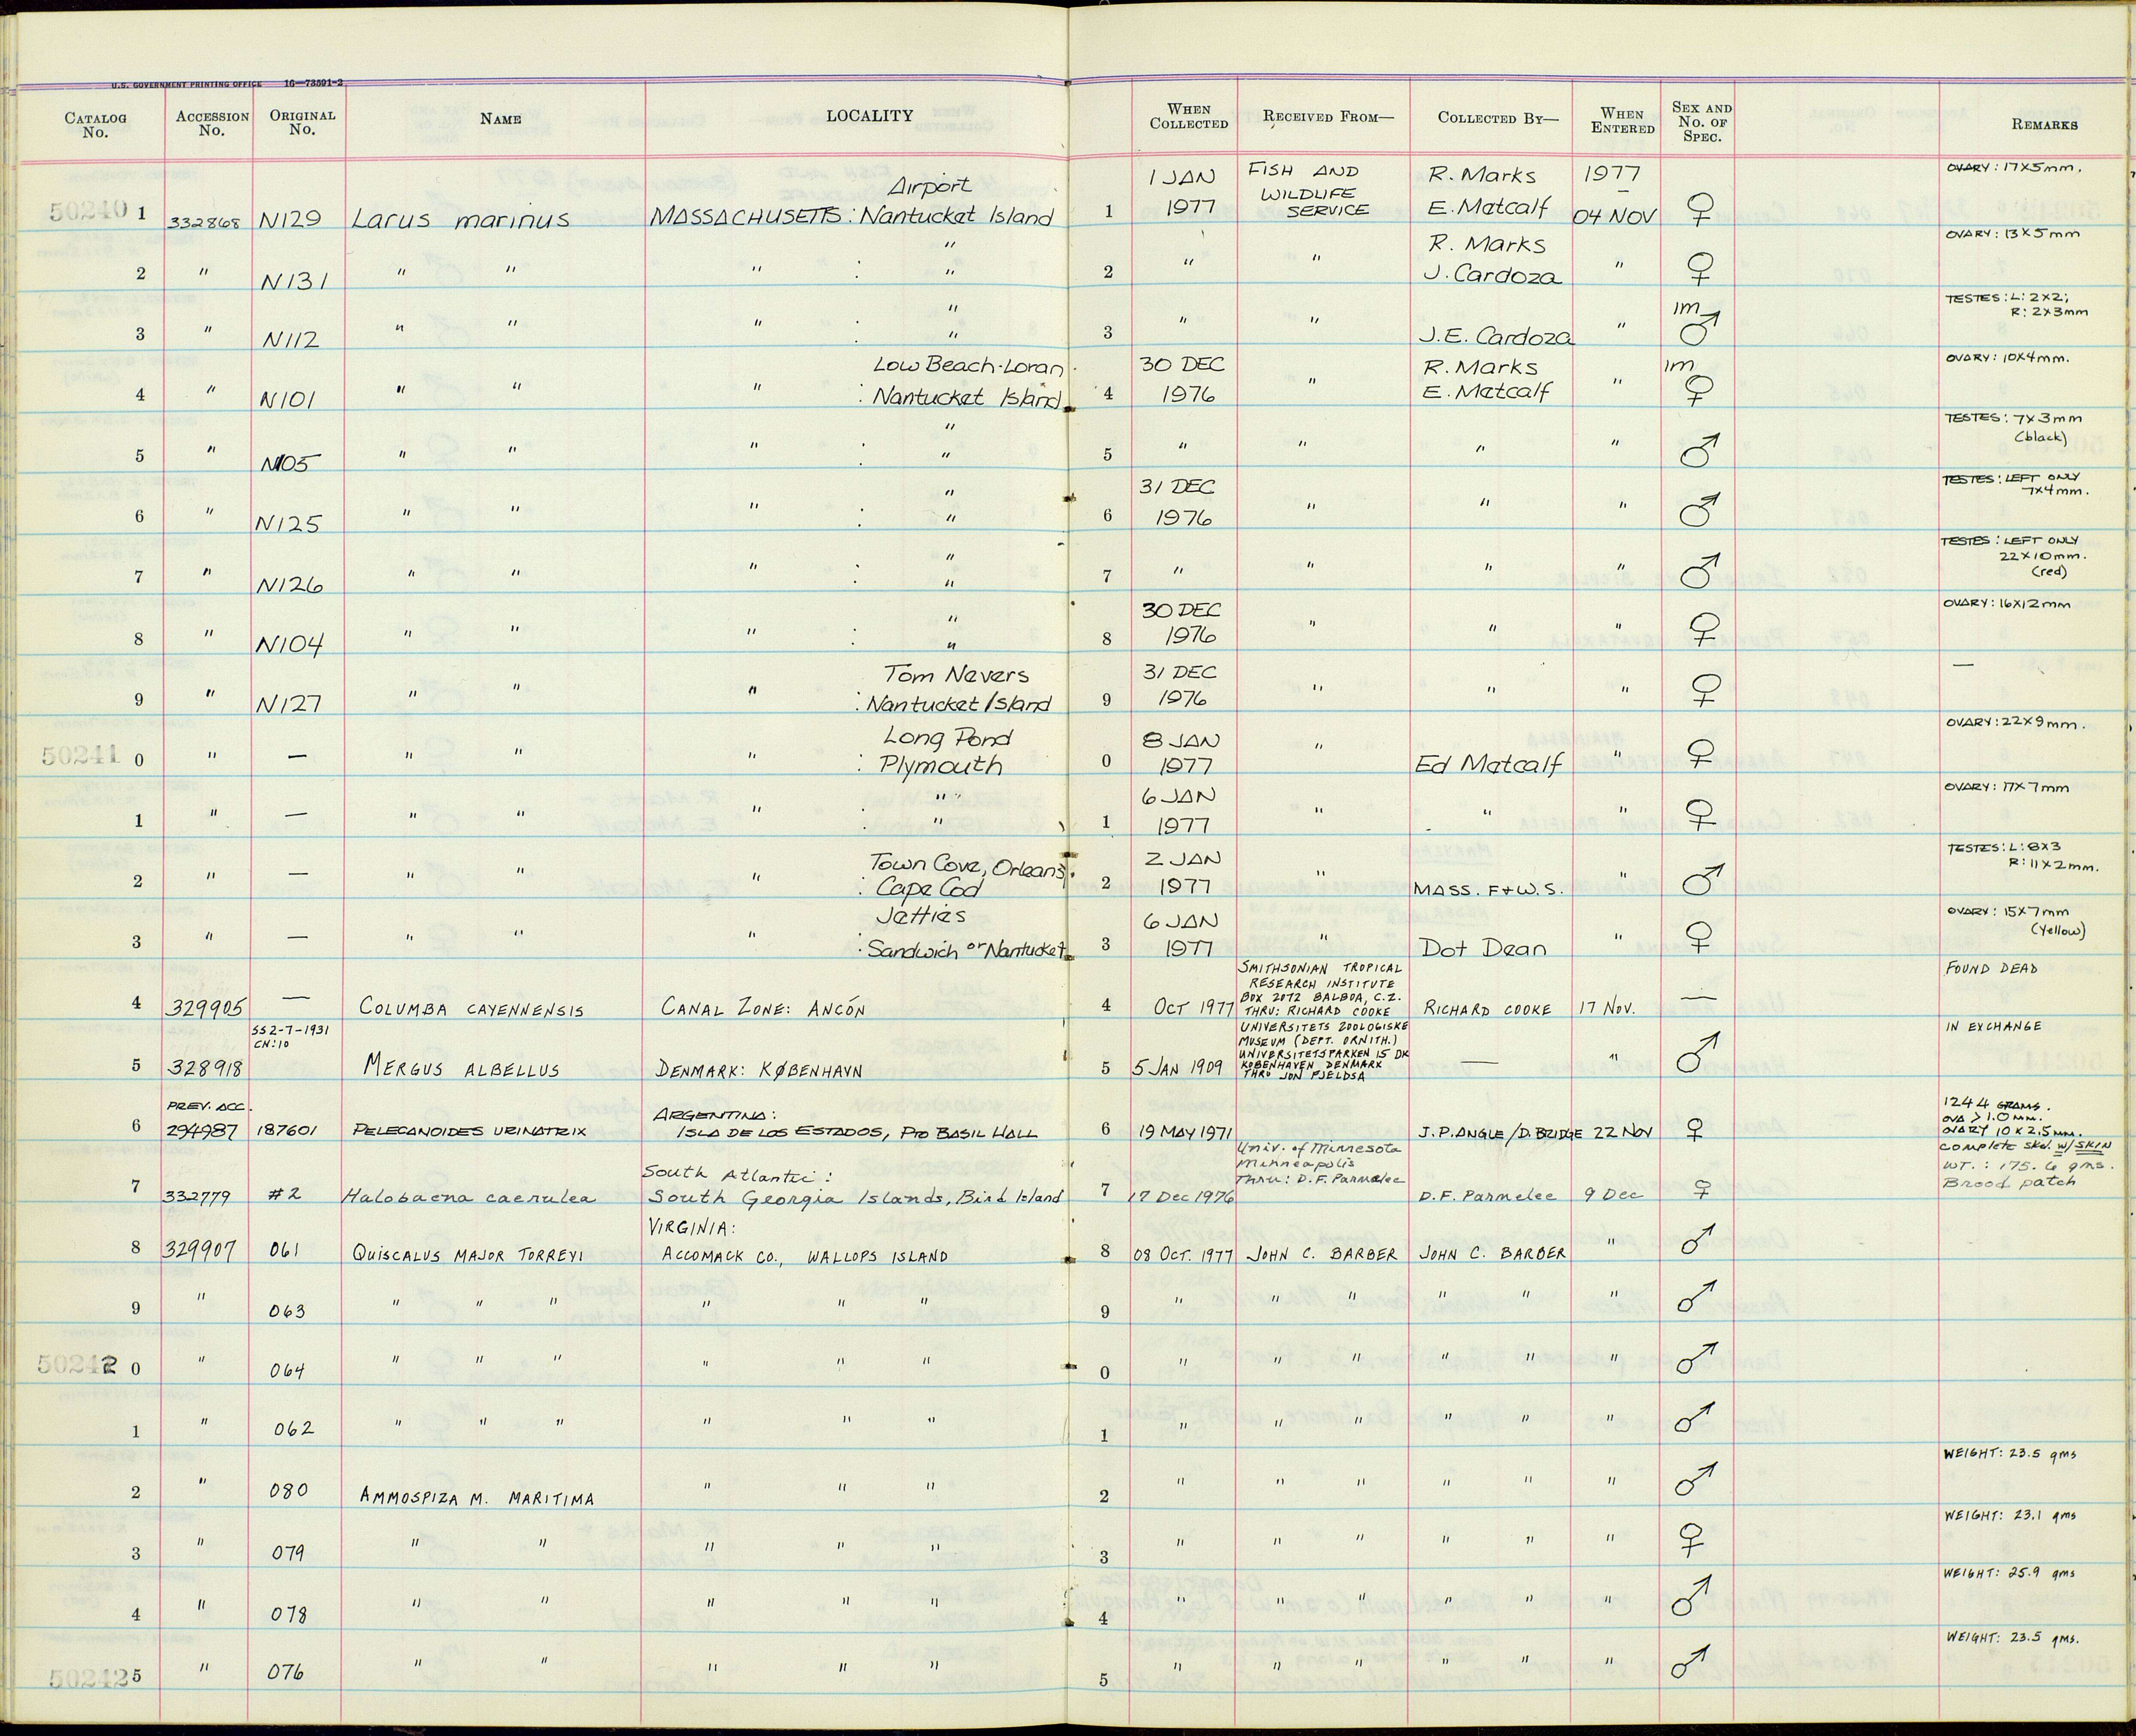 U.S. GOVERNMENT PRINTING OFFICE 16—73591-2
CATALOG No. ACCESSION No. ORIGINAL No. NAME LOCALITY WHEN COLLECTED RECEIVED FROM— COLLECTED BY— WHEN ENTERED SEX AND No. OF SPEC. REMARKS
Airport 1 JAN FISH AND R. Marks 1977 OVARY: 17X5mm.
50240 1 332868 N129 Larus marinus MASSACHUSETTS: Nantucket Island 1 1977 WILDLIFE SERVICE E. Metcalf 04 NOV ♀
" R. Marks OVARY: 13X5mm
2 " N131 " " " : " 2 " " J. Cardoza " ♀
" im TESTES: L: 2X2; R: 2X3mm
3 " N112 " " " : " 3 " " J.E. Cardoza " ♂
Low Beach-Loran 30 DEC R. Marks im OVARY: 10X4mm.
4 " N101 " " " : Nantucket Island 4 1976 " E. Metcalf " ♀
" TESTES: 7X3mm (black)
5 " N105 " " " : " 5 " " " " ♂
" 31 DEC TESTES: LEFT ONLY 7X4mm.
6 " N125 " " " : " 6 1976 " " " ♂
" TESTES: LEFT ONLY 22X10mm. (red)
7 " N126 " " " : " 7 " " " " ♂
" 30 DEC OVARY: 16X12mm
8 " N104 " " " : " 8 1976 " " " ♀
Tom Nevers 31 DEC —
9 " N127 " " " : Nantucket Island 9 1976 " " " ♀
Long Pond 8 JAN OVARY: 22X9mm.
50241 0 " — " " " : Plymouth 0 1977 " Ed Metcalf " ♀
" 6 JAN OVARY: 17X7mm
1 " — " " " : " 1 1977 " " " ♀
Town Cove, Orleans 2 JAN TESTES: L: 8X3 R: 11X2mm.
2 " — " " " : Cape Cod 2 1977 " MASS. F+W.S. ♂
Jetties 6 JAN OVARY: 15X7mm (Yellow)
3 " — " " " : Sandwich or Nantucket 3 1977 " Dot Dean " ♀
SMITHSONIAN TROPICAL RESEARCH INSTITUTE BOX 2072 BALBOA, C.Z. THRU: RICHARD COOKE FOUND DEAD
4 329905 — COLUMBA CAYENNENSIS CANAL ZONE: ANCÓN 4 OCT 1977 RICHARD COOKE 17 NOV. —
SS2-7-1931 CN:10 UNIVERSITETS ZOOLOGISKE MUSEUM (DEPT. ORNITH.) UNIVERSITETSPARKEN 15 DK KØBENHAVEN DENMARK THRU JON FJELDSA IN EXCHANGE
5 328918 MERGUS ALBELLUS DENMARK: KØBENHAVN 5 5 JAN 1909 — " ♂
PREV. ACC. ARGENTINA: 124.4 GRAMS. OVA > 1.0MM. OVARY 10 X 2.5MM.
6 294987 187601 PELECANOIDES URINATRIX ISLA DE LOS ESTADOS, PTO BASIL HALL 6 19 MAY 1971 J.P. ANGLE/D. BRIDGE 22 NOV ♀
South Atlantic: Univ. of Minnesota Minneapolis Thru: D.F. Parmelee Complete skel. w/ SKIN WT.: 175.6 gms. Brood patch
7 332779 #2 Halobaena caerulea South Georgia Islands, Bird Island 7 17 Dec 1976 D.F. Parmelee 9 Dec ♀
VIRGINIA:
8 329907 061 QUISCALUS MAJOR TORREYI ACCOMACK CO., WALLOPS ISLAND 8 08 OCT. 1977 JOHN C. BARBER JOHN C. BARBER " ♂
9 " 063 " " " " " " 9 " " " " " " ♂
50242 0 " 064 " " " " " " 0 " " " " " " ♂
1 " 062 " " " " " " 1 " " " " " " ♂
WEIGHT: 23.5 gms
2 " 080 AMMOSPIZA M. MARITIMA " " " 2 " " " " " " ♂
WEIGHT: 23.1 gms
3 " 079 " " " " " 3 " " " " " " ♀
WEIGHT: 25.9 gms
4 " 078 " " " " " 4 " " " " " " ♂
WEIGHT: 23.5 gms.
50242 5 " 076 " " " " " 5 " " " " " " ♂